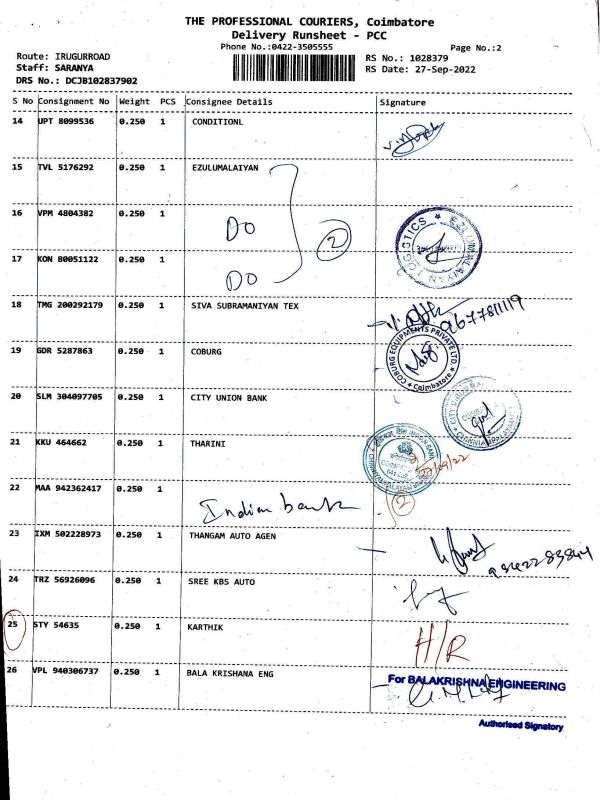 THE PROFESSIONAL COURIERS, Coimbatore
Delivery Runsheet - PCC
Phone No.:0422-3505555
Page No.:2
Route: IRUGURROAD
Staff: SARANYA
DRS No.: DCJB102837902
RS No.: 1028379
RS Date: 27-Sep-2022
S No Consignment No Weight PCS Consignee Details Signature
14 UPT 8099536 0.250 1 CONDITIONL
15 TVL 5176292 0.250 1 EZULUMALAIYAN
16 VPM 4804382 0.250 1
DO
2
17 KON 80051122 0.250 1
DO
18 TMG 200292179 0.250 1 SIVA SUBRAMANIYAN TEX
9677811119
19 GDR 5287863 0.250 1 COBURG
COBURG EQUIPMENTS PRIVATE LTD.
Coimbatore
20 SLM 304097705 0.250 1 CITY UNION BANK
21 KKU 464662 0.250 1 THARINI
22 MAA 942362417 0.250 1
Indian bank
2
23 IXM 502228973 0.250 1 THANGAM AUTO AGEN
24 TRZ 56926096 0.250 1 SREE KBS AUTO
25 STY 54635 0.250 1 KARTHIK
H/R
26 VPL 940306737 0.250 1 BALA KRISHANA ENG
For BALAKRISHNA ENGINEERING
Authorised Signatory